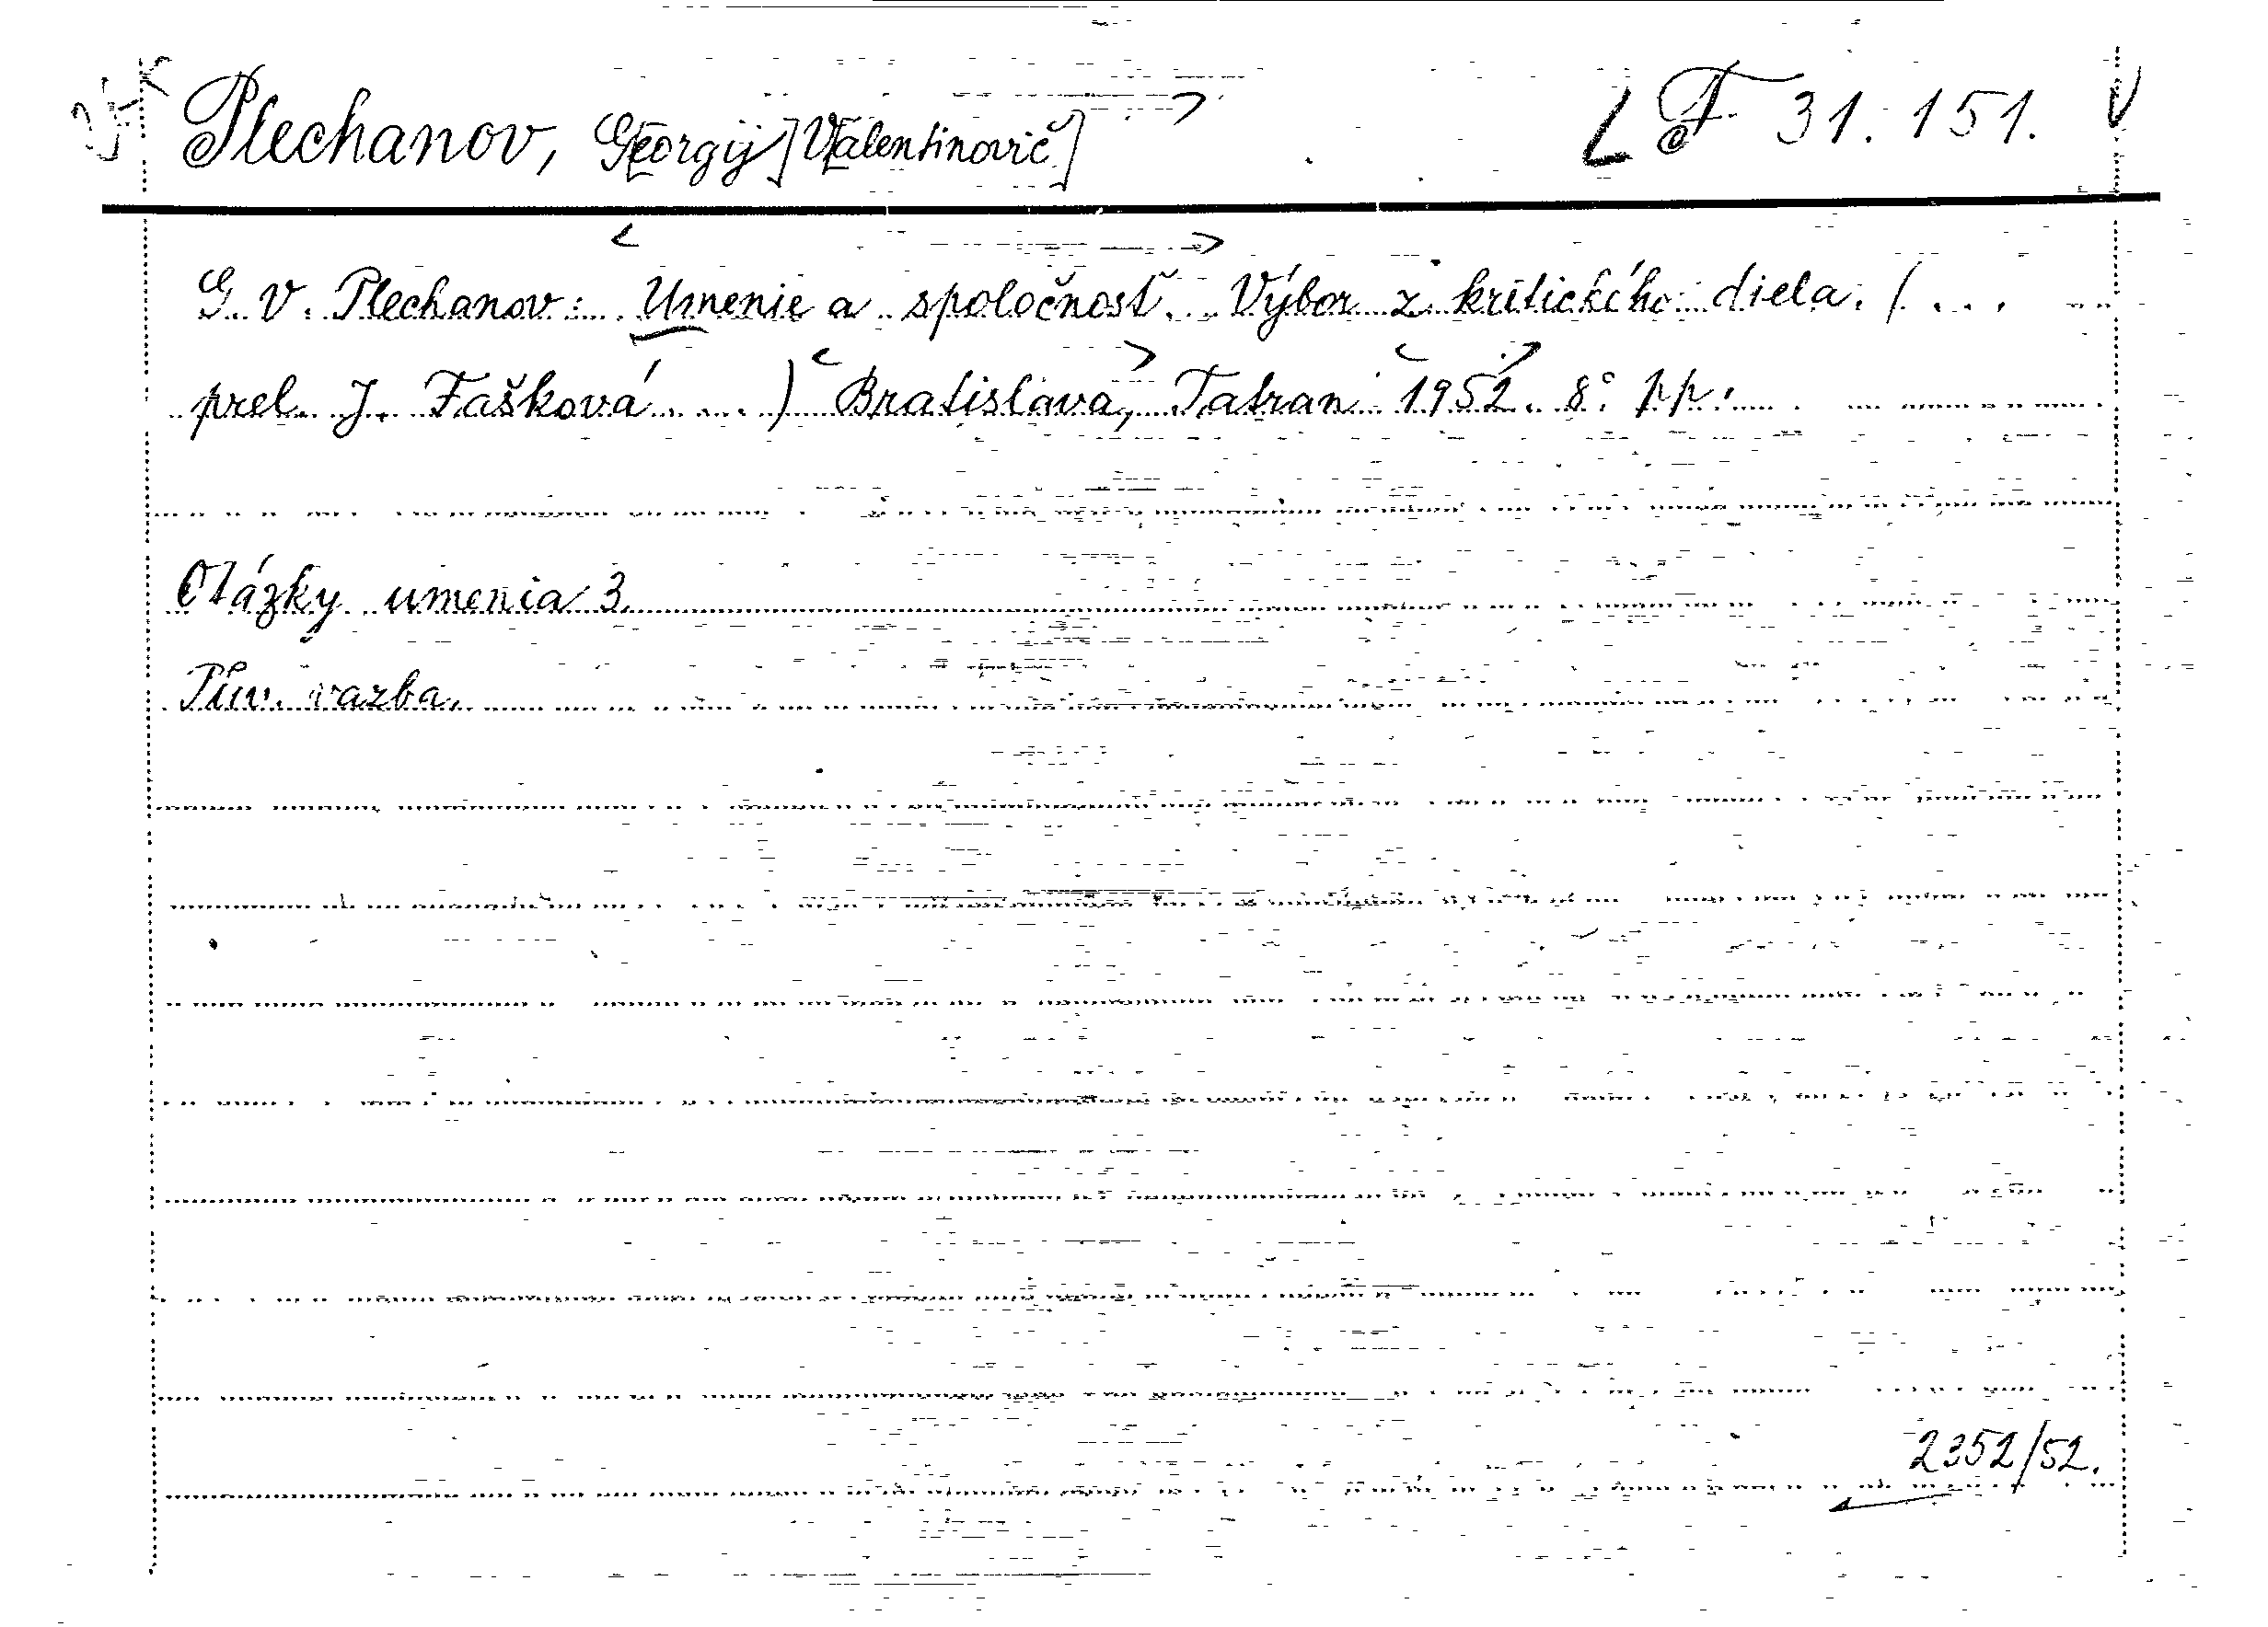 Plechanov, G[eorgij] V[alentinovič] F 31.151.
G. V. Plechanov: Umenie a spoločnosť. Výbor z kritického diela. (...
prel. J. Fašková ...) Bratislava, Tatran 1952. 8° pp.
Otázky umenia 3.
Pův. vazba.
2352/52.